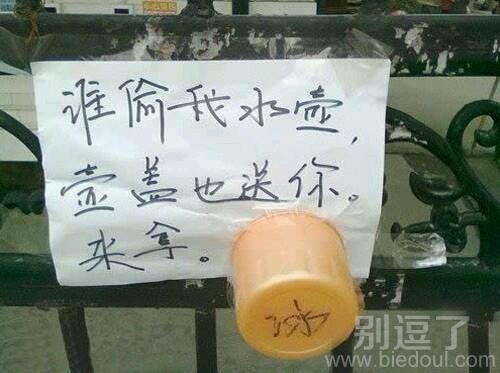 谁偷我水壶，
壶盖也送你。
来拿。
别逗了
www.biedoul.com